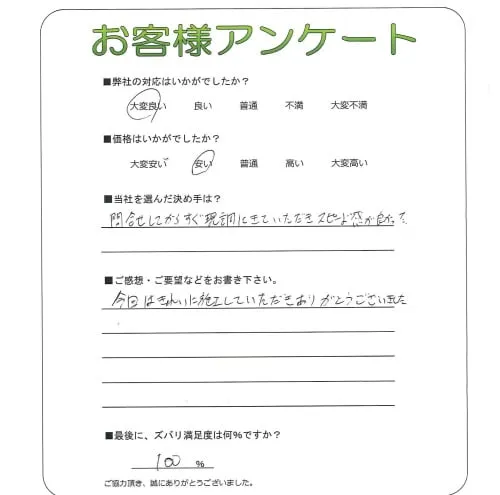 お客様アンケート
■弊社の対応はいかがでしたか？
大変良い 良い 普通 不満 大変不満
■価格はいかがでしたか？
大変安い 安い 普通 高い 大変高い
■当社を選んだ決め手は？
問合せしてからすぐ現調にきていただきスピード感が良かった
■ご感想・ご要望などをお書き下さい。
今回はきれいに施工していただきありがとうございました
■最後に、ズバリ満足度は何%ですか？
100 %
ご協力頂き、誠にありがとうございました。